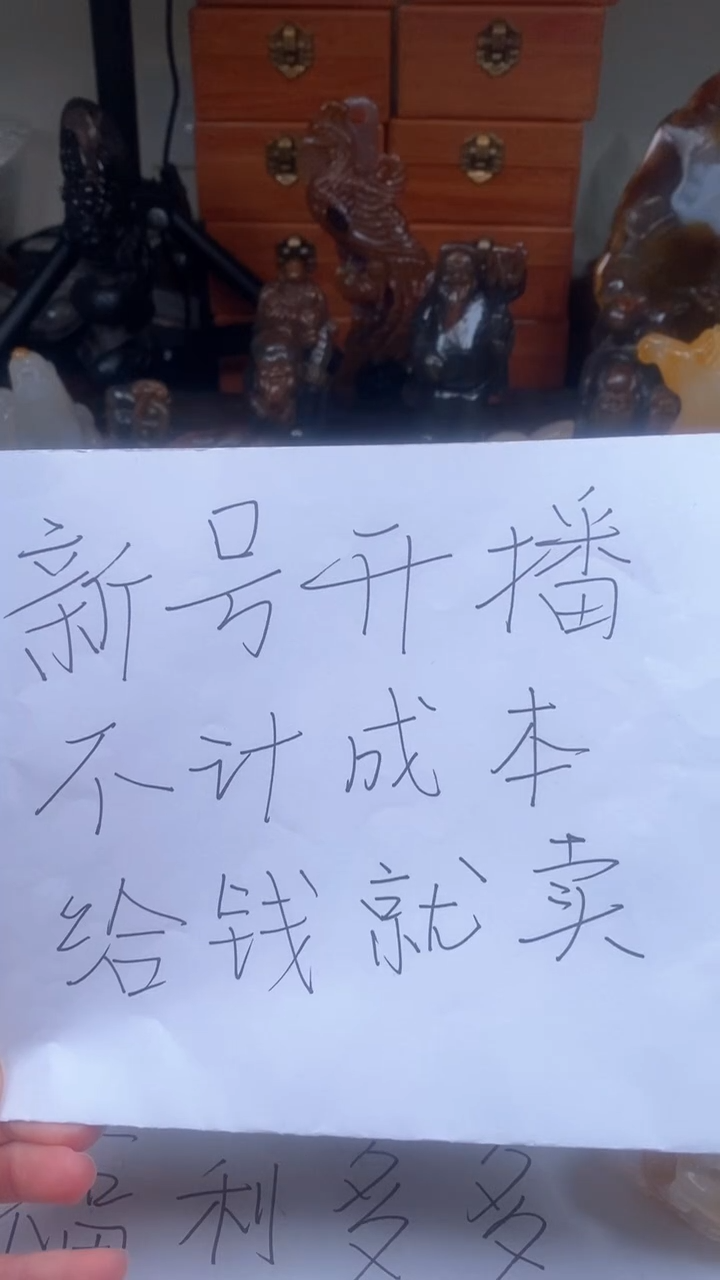 新号开播
不计成本
给钱就卖
福利多多